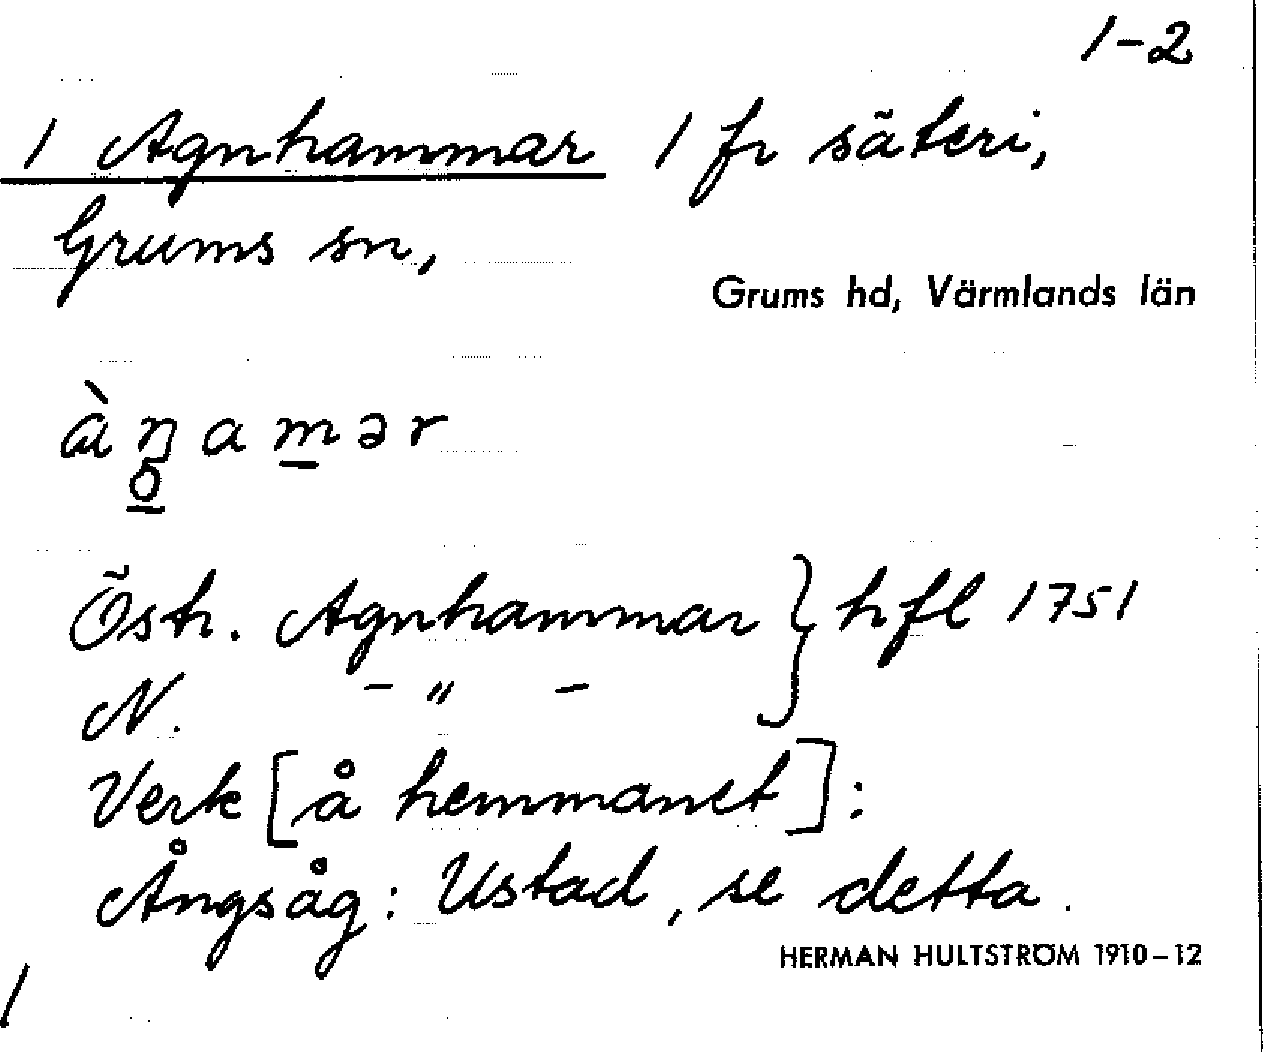 1-2
1 Agnhammar 1 fr säteri,
Grums sn,
Grums hd, Värmlands län
Östr. Agnhammar } hfl 1751
N. - " -
Verk [å hemmanet]:
Ångsåg: Ustad, se detta.
HERMAN HULTSTRÖM 1910-12
1